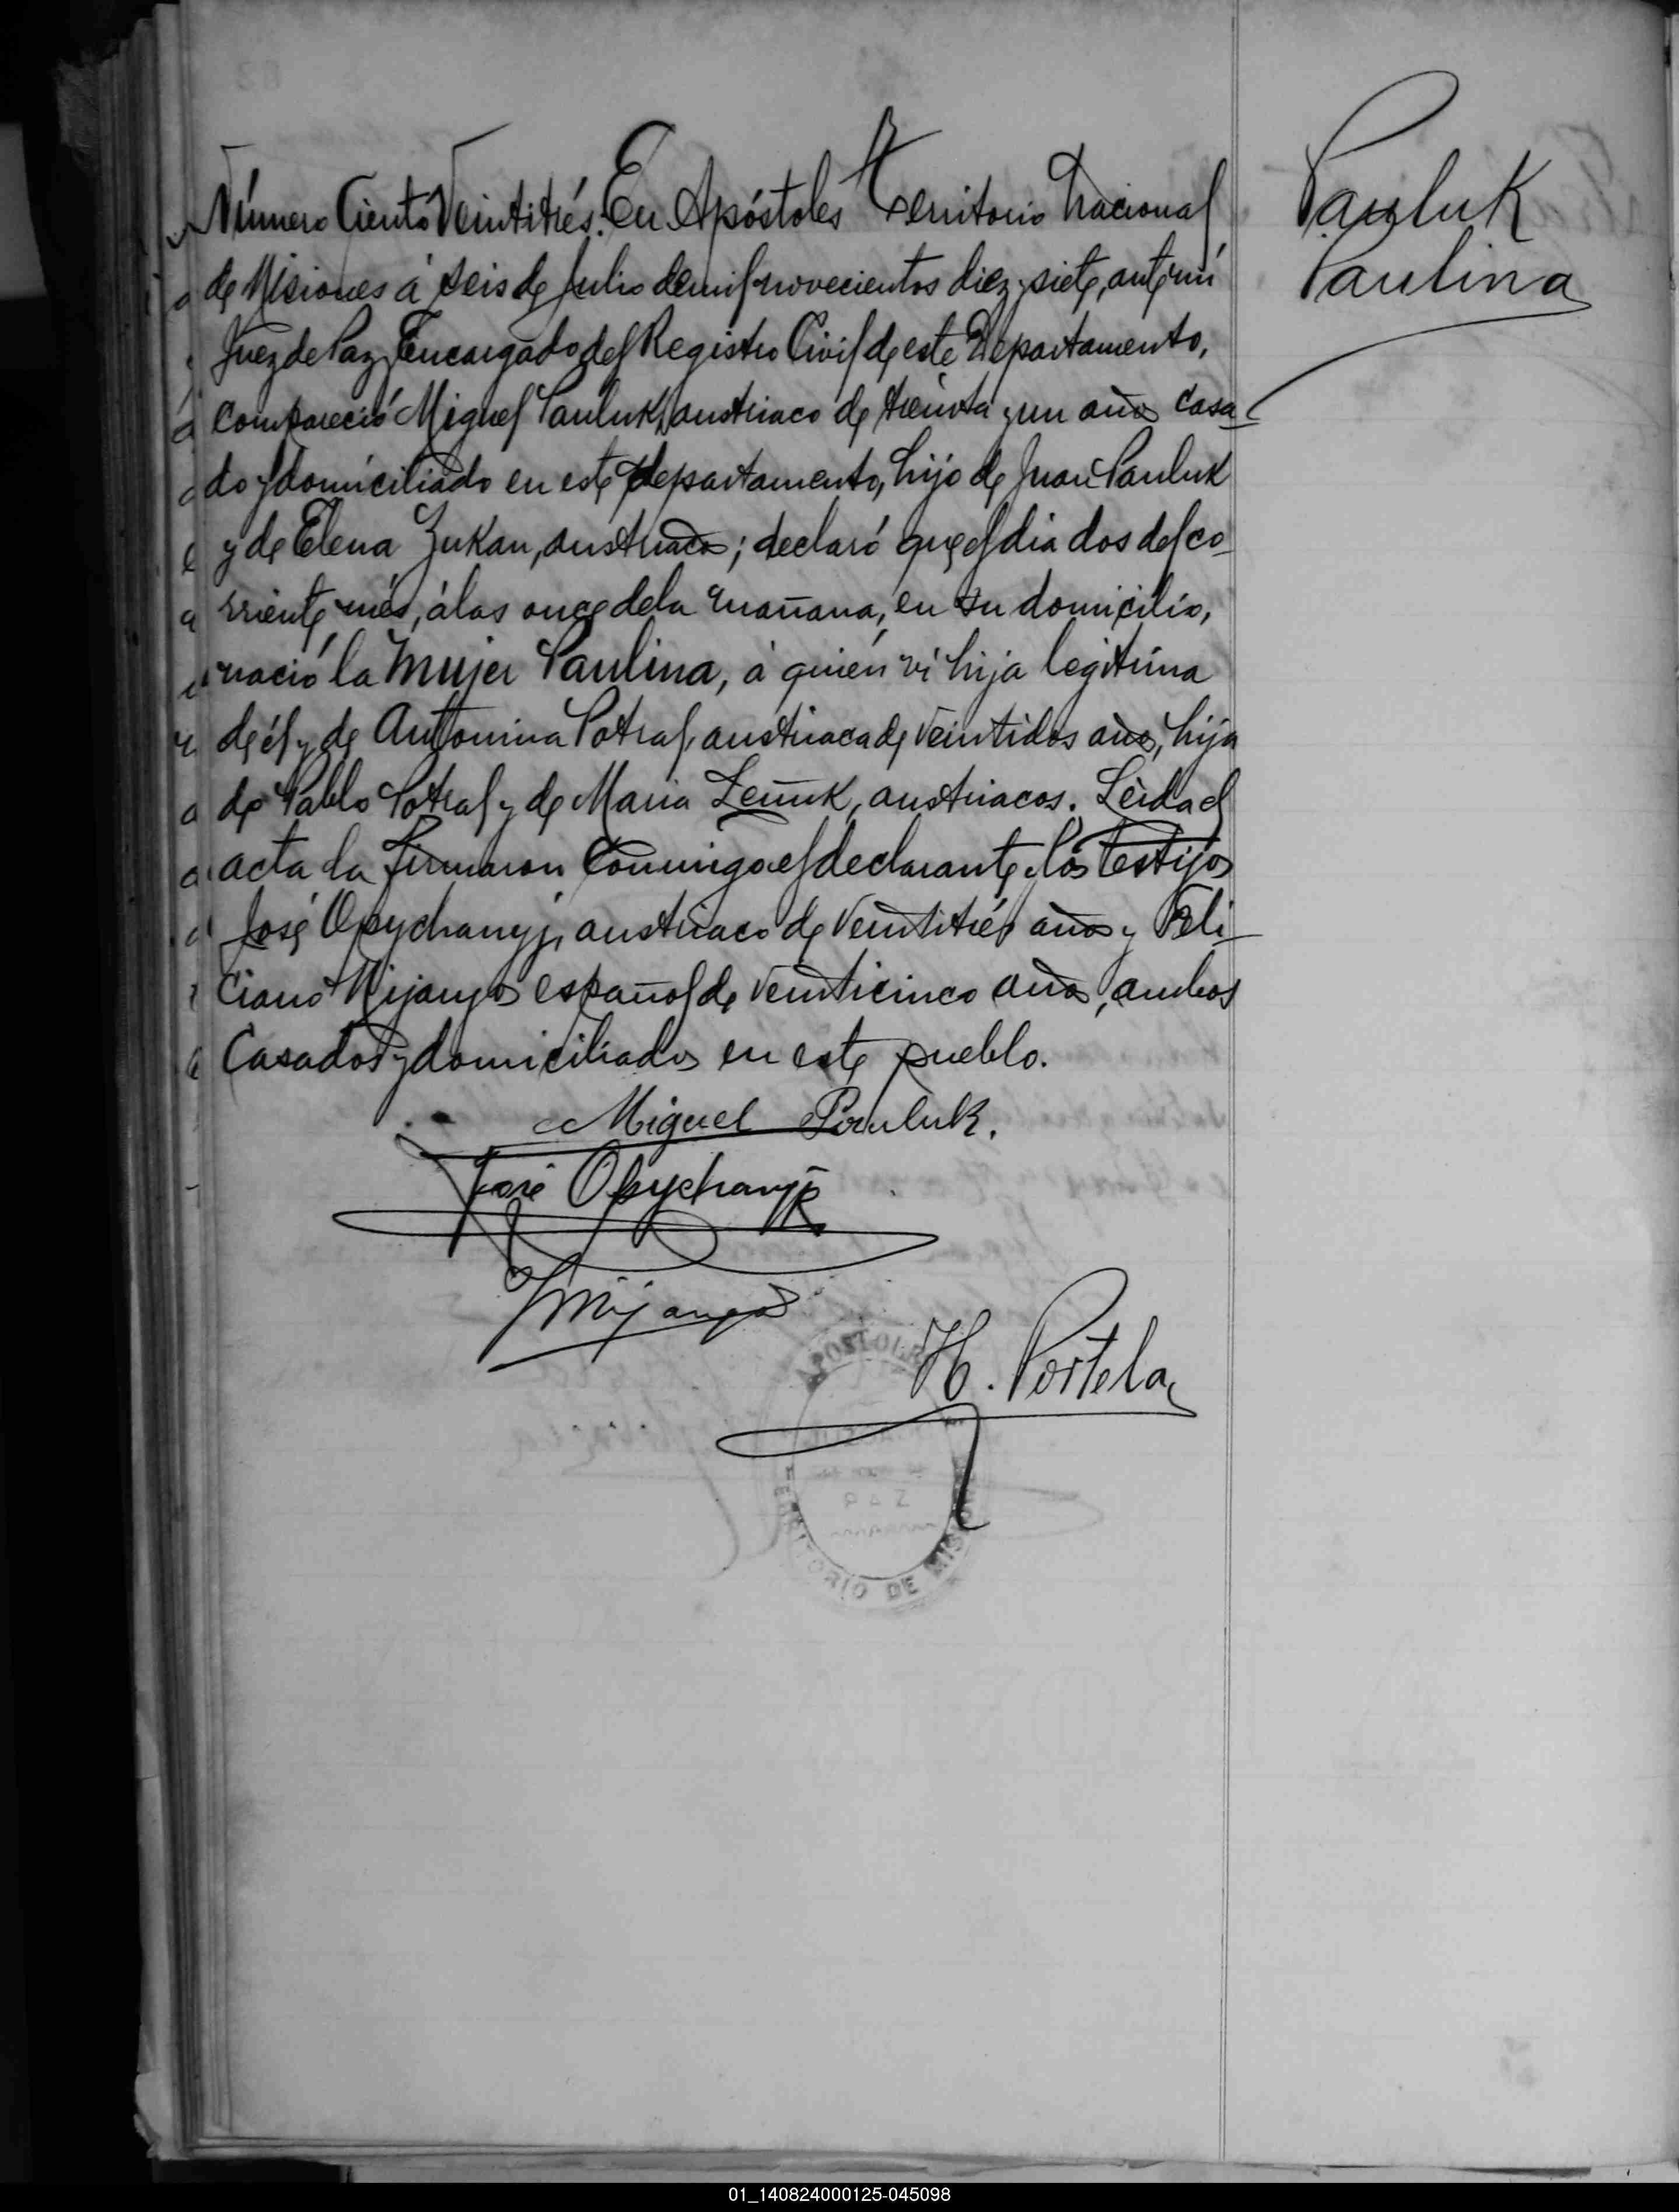 Número Ciento Veintitrés. En Apóstoles Territorio Nacional
de Misiones á seis de Julio de mil novecientos diez y siete, ante mí
Juez de Paz Encargado del Registro Civil de este Departamento,
compareció Miguel Pauluk, austriaco de treinta y un años casa-
do y domiciliado en este departamento, hijo de Juan Pauluk
y de Elena Zukan, austriacos; declaró que el dia dos del co-
rriente més, á las once de la mañana, en su domicilio,
nació la mujer Paulina, á quién ví hija legítima
de él y de Antonina Potral, austriaca de veintidos años, hija
de Pablo Potral y de Maria austriacos. Leida el
acta la firmaron conmigo el declarante y los testigos
José Opychanyj, austriaco de veintitrés años y Feli-
ciano Mijangos español de veinticinco años, ambos
Casados y domiciliados en este pueblo.
Miguel Pauluk.
José Opychanyj
Mijangos
H. Portela
APOSTOLES
PAZ
TERRITORIO DE MISIONES
Pauluk
Paulina
01_140824000125-045098